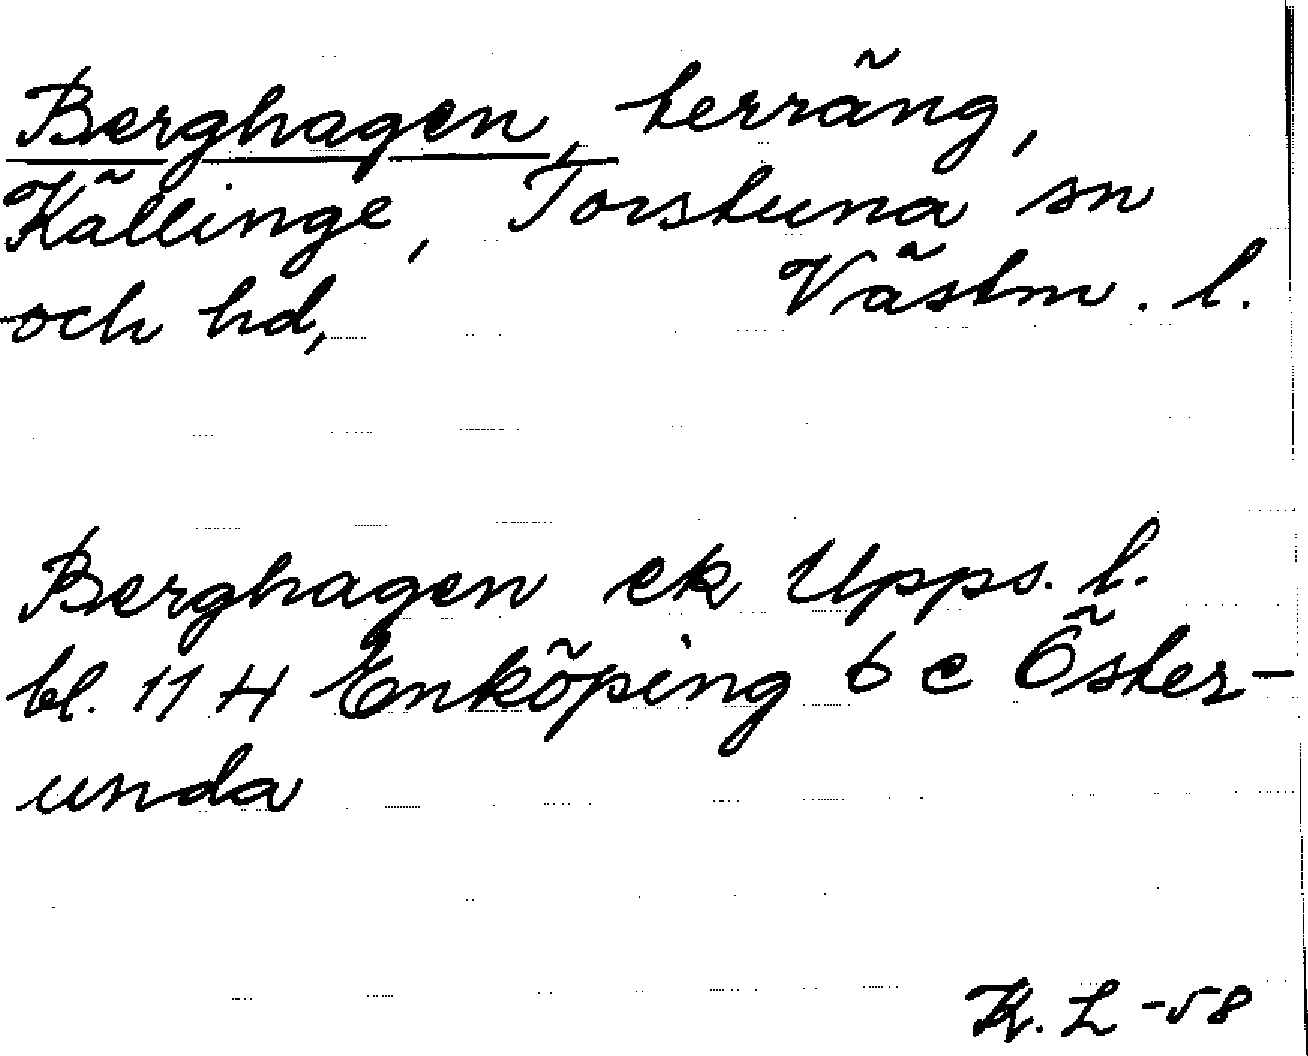 Berghagen, terräng,
Källinge, Torstuna sn
och hd, Västm. l.
Berghagen ek Upps. l.
bl. 11 H Enköping 6 c Öster-
unda
K. L -58